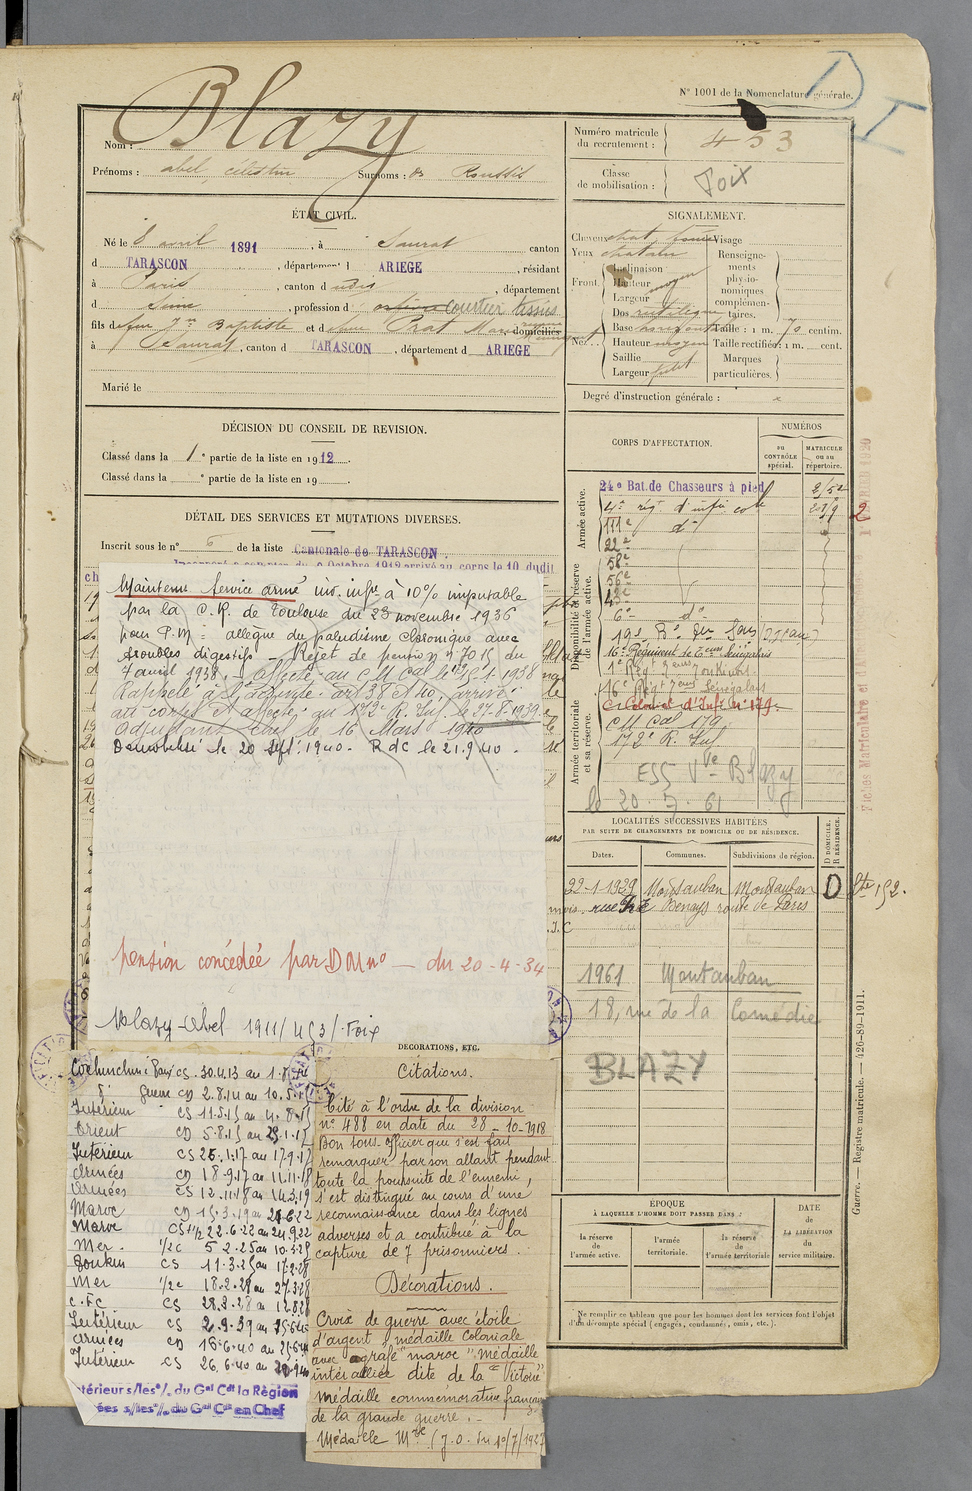 N° 1001 de la Nomenclature générale.
D I
Nom : Blazy
Prénoms : abel, célestin Surnoms : Roussis
ÉTAT CIVIL.
Né le 8 avril 1891, à Saurat canton
d TARASCON, département d ARIEGE, résidant
à Paris, canton d udis, département
d Seine, profession d courtier tissus
fils de feu Jn Baptiste et de feue Prat Marie domiciliés
à Saurat, canton d TARASCON, département d ARIEGE
Marié le
DÉCISION DU CONSEIL DE REVISION.
Classé dans la 1e partie de la liste en 1912.
Classé dans la e partie de la liste en 19
DÉTAIL DES SERVICES ET MUTATIONS DIVERSES.
Inscrit sous le n° 6 de la liste Cantonale de TARASCON.
Incorporé à compter du 9 Octobre 1912 arrivé au corps le 10 dudit
Maintenu Service armé inv. infre à 10% imputable
par la C.R. de Toulouse du 23 novembre 1936
pour P.M = allègue du paludisme chronique avec
troubles digestifs - Rejet de pension n 7015 du
7 avril 1938. - Affecté au CM Col le 15-1-1938
Rappelé à l'activité art 38 et 40, arrivé
au corps et affecté au 172e R. Inf. le 27-8-1939.
Adjudant chef le 16 Mars 1940
Démobilisé le 20 Sept. 1940 - RdC le 21.9.40.
pension concédée par DM n° — du 20-4-34
Blazy-Abel 1911/453/Foix
Cochinchine Paix CS. 30.4.13 au 1.8.14
d° Guerre CD 2.8.14 au 10.5.15
Intérieur CS 11.5.15 au 4.8.15
Orient CD 5.8.15 au 25.1.17
Intérieur CS 25.1.17 au 17.9.17
Armées CD 18.9.17 au 11.11.18
Armées CS 12.11.18 au 14.3.19
Maroc CD 15.3.19 au 21.6.22
Maroc CS 1/2 22.6.22 au 24.9.22
Mer. 1/2c 5.2.25 au 10.3.25
Tonkin CS 11.3.25 au 17.2.28
Mer 1/2c 18.2.28 au 27.3.28
C.F.C CS 28.3.28 au 12.8.28
Intérieur CS 2.9.39 au 15.6.40
Armées CD 16.6.40 au 25.6.40
Intérieur CS 26.6.40 au 20.9.40
térieur s/les°/. du Gal Cdt la Région
ées s/les°/. du Gal Cdt en Chef
DÉCORATIONS, ETC.
Citations.
Cité à l'ordre de la division
n° 488 en date du 28-10-1918
Bon sous-officier que s'est fait
remarquer par son allant pendant
toute la poursuite de l'ennemi,
s'est distingué au cours d'une
reconnaissance dans les lignes
adverses et a contribué à la
capture de 7 prisonniers.
Décorations.
Croix de guerre avec étoile
d'argent médaille Coloniale
avec agrafe "maroc" médaille
interalliée dite de la "Victoire"
médaille commémorative française
de la grande guerre. -
Médaille Mre (J.O. du 10/7/1927
Numéro matricule du recrutement : 453
Classe de mobilisation : Foix
SIGNALEMENT.
Cheveux chat. foncé Visage
Yeux chatain
Front. Inclinaison
Hauteur moyen
Largeur
Nez. Dos rectiligne
Base horizontale
Hauteur moyen
Saillie
Largeur petit
Renseignements physionomiques complémentaires.
Taille : 1 m. 70 centim.
Taille rectifiée : 1 m. cent.
Marques particulières.
Degré d'instruction générale :
CORPS D'AFFECTATION.
NUMÉROS
DU CONTRÔLE spécial.
MATRICULE ou au répertoire.
Armée active.
24e Bat. de Chasseurs à pied
4e rég. d'infie col
111e d°
Disponibilité et réserve de l'armée active.
22e
58e
56e
6e d°
16e Régiment de Tirs Sénégalais
1e Régt Tirs Tonkinois
16e Régt Tirs Sénégalais
Armée territoriale et sa réserve.
C. Colonial d'Infie n° 179.
CM Col 179
172e R. Inf.
ESS Vve Blazy
le 20.7.61
LOCALITÉS SUCCESSIVES HABITÉES
PAR SUITE DE CHANGEMENTS DE DOMICILE OU DE RÉSIDENCE.
Dates. Communes. Subdivisions de région. D DOMICILE. R RÉSIDENCE.
22-1-1929 Montauban Montauban D
route de Paris
1961 Montauban
18, rue de la Comédie
BLAZY
ÉPOQUE
À LAQUELLE L'HOMME DOIT PASSER DANS :
la réserve de l'armée active.
l'armée territoriale.
la réserve de l'armée territoriale
DATE de LA LIBÉRATION du service militaire.
Ne remplir ce tableau que pour les hommes dont les services font l'objet d'un décompte spécial (engagés, condamnés, omis, etc.).
Guerre. — Registre matricule. — 426-89-1911.